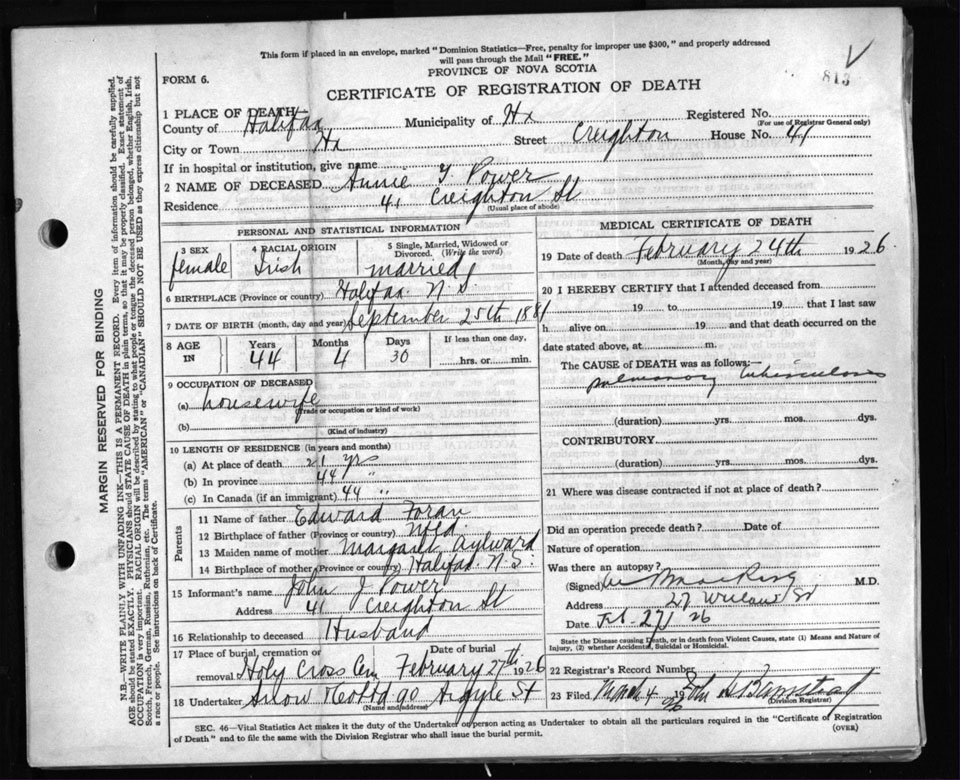 This form if placed in an envelope, marked "Dominion Statistics—Free, penalty for improper use $300," and properly addressed
will pass through the Mail "FREE."
PROVINCE OF NOVA SCOTIA
813
FORM 6.
CERTIFICATE OF REGISTRATION OF DEATH
1 PLACE OF DEATH
County of Halifax Municipality of Hx Registered No.
(For use of Registrar General only)
City or Town Hx Street Creighton House No. 41
If in hospital or institution, give name
2 NAME OF DECEASED Annie J. Power
Residence 41 Creighton St
(Usual place of abode)
PERSONAL AND STATISTICAL INFORMATION
3 SEX 4 RACIAL ORIGIN 5 Single, Married, Widowed or
Divorced. (Write the word)
female Irish married
6 BIRTHPLACE (Province or country) Halifax N.S
7 DATE OF BIRTH (month, day and year) September 25th 1881
8 AGE IN Years Months Days If less than one day,
44 4 30 hrs. or min.
9 OCCUPATION OF DECEASED
(a) housewife
(Trade or occupation or kind of work)
(b)
(Kind of industry)
10 LENGTH OF RESIDENCE (in years and months)
(a) At place of death 21 yrs
(b) In province 44 "
(c) In Canada (if an immigrant) 44 "
Parents
11 Name of father Edward Foran
12 Birthplace of father (Province or country) Nfld.
13 Maiden name of mother Margaret Aylward
14 Birthplace of mother (Province or country) Halifax. N.S.
15 Informant's name John J. Power
Address 41 Creighton St
16 Relationship to deceased Husband
17 Place of burial, cremation or Date of burial
removal Holy Cross Cem February 27th 1926
18 Undertaker Snow & Co Ltd 90 Argyle St
(Name and address)
MEDICAL CERTIFICATE OF DEATH
19 Date of death February 24th 1926
(Month, day and year)
20 I HEREBY CERTIFY that I attended deceased from
19 to 19 that I last saw
h alive on 19 and that death occurred on the
date stated above, at m.
The CAUSE of DEATH was as follows:—
pulmonary tuberculosis
(duration) yrs. mos. dys.
CONTRIBUTORY
(duration) yrs. mos. dys.
21 Where was disease contracted if not at place of death?
Did an operation precede death? Date of
Nature of operation
Was there an autopsy?
(Signed) M.D.
Address 27 Willow St
Date Feb 27 26
State the Disease causing Death, or in death from Violent Causes, state (1) Means and Nature of
Injury, (2) whether Accidental, Suicidal or Homicidal.
22 Registrar's Record Number
23 Filed March 4 1926 John
(Division Registrar)
SEC. 46—Vital Statistics Act makes it the duty of the Undertaker or person acting as Undertaker to obtain all the particulars required in the "Certificate of Registration
of Death" and to file the same with the Division Registrar who shall issue the burial permit.
(OVER)
MARGIN RESERVED FOR BINDING
N.B.—WRITE PLAINLY WITH UNFADING INK—THIS IS A PERMANENT RECORD. Every item of information should be carefully supplied.
AGE should be stated EXACTLY. PHYSICIANS should STATE CAUSE OF DEATH in plain terms, so that it may be properly classified. Exact statement of
OCCUPATION is very important. RACIAL ORIGIN will be described by stating to what people or tongue the deceased person belonged, whether English, Irish,
Scotch, French, German, Russian, Ruthenian, etc. The terms "AMERICAN" or "CANADIAN" SHOULD NOT BE USED as they express citizenship but not
a race or people. See instructions on back of Certificate.